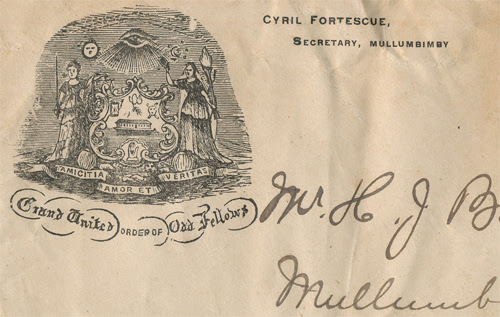 CYRIL FORTESCUE,
SECRETARY, MULLUMBIMBY
AMICITIA
AMOR ET
VERITAS
Grand United ORDER OF Odd Fellows
Mr. H. J. B
Mullumb